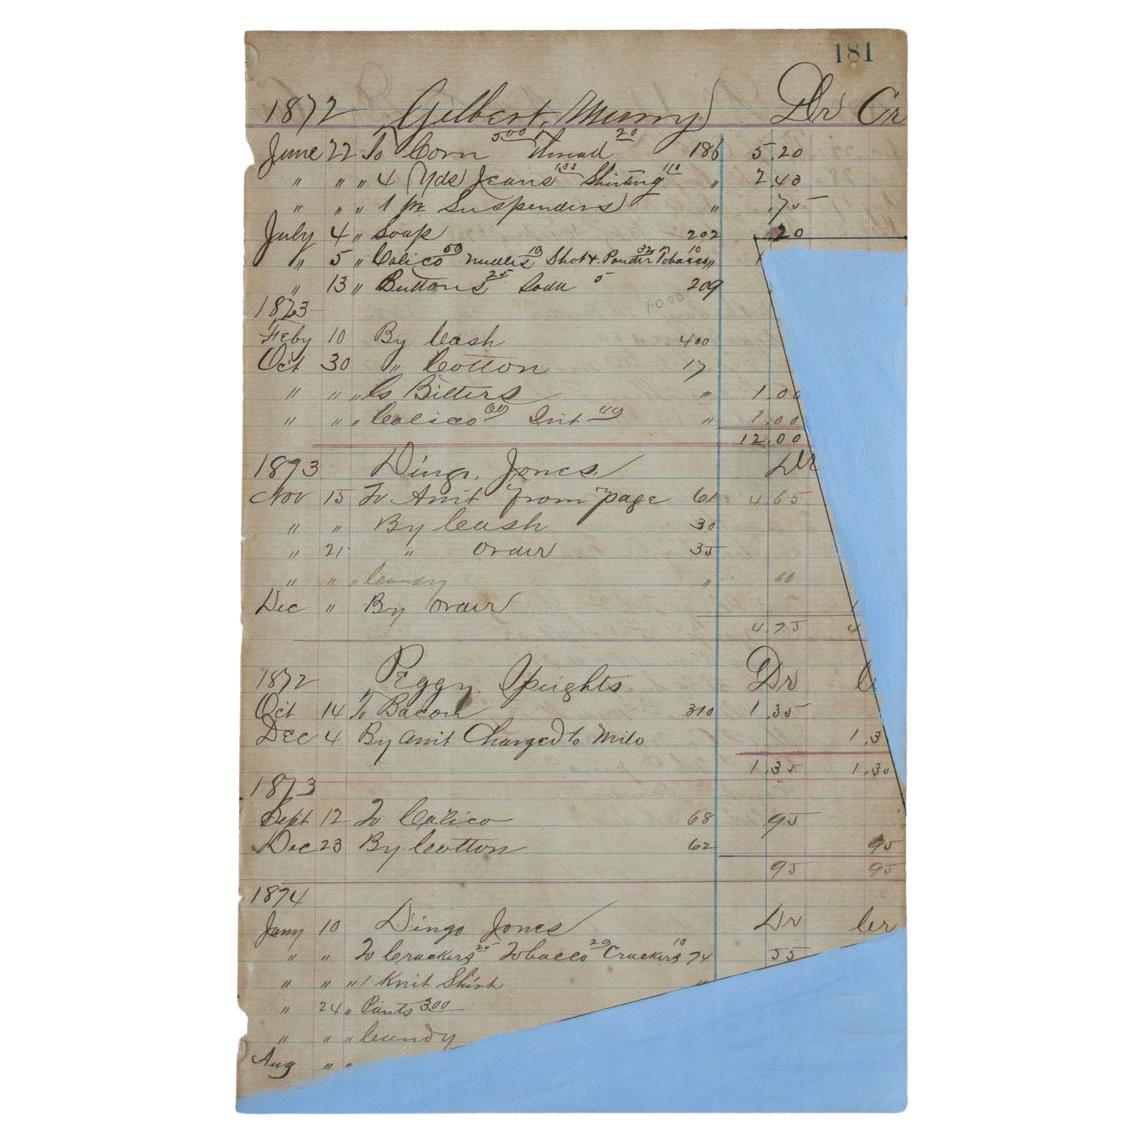 181
1872 Gilbert, Murry Dr Cr
June 22 To Corn 5.00 Thread 20 186 5.20
" " " 4 Yds Jeans 1.33 Shirting 1.10 " 2.43
" " " 1 pr Suspenders " .75
July 4 " Soap 202 .20
" 5 " Calico 50 Needles 10 Shot & Powder Tobacco 10 "
" 13 " Buttons 25 Soda 5 209
10.00
1873
Feby 10 By Cash 400
Oct 30 " Cotton 17
" " " To Bitters " 1.00
" " " Calico 60 " 1.00
12.00
1873 Dingo, Jones Dr
Nov 15 To Amt from page 61 4.65
" " By Cash 30
" 21 " order 35
" " " Candy "
Dec " By order
4.75 4
1872 Peggy, Speights Dr C
Oct 14 To Bacon 310 1.35
Dec 4 By amt Charged to Milo 1.3
1.35 1.3
1873
Sept 12 To Calico 68 95
Dec 23 By Cotton 62 95
95 95
1874
Jany 10 Dingo Jones Dr Cr
" " To Crackers 25 Tobacco 20 Crackers 10 74 55
" " " 1 Knit Shirt "
" 24 " Pants 3.00
" " " Candy
Aug " "